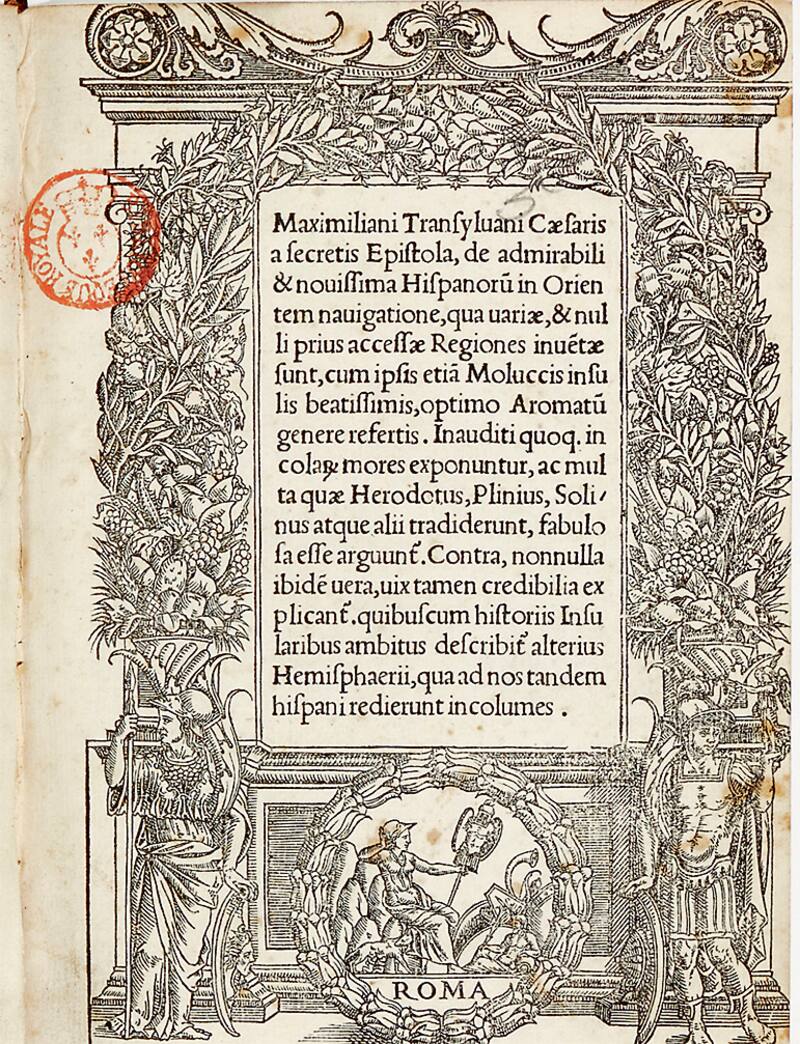 Maximiliani Tranſyluani Cæſaris
a ſecretis Epiſtola, de admirabili
& nouiſſima Hiſpanorũ in Orien
tem nauigatione, qua uariæ, & nul
li prius acceſſæ Regiones inuẽtæ
ſunt, cum ipſis etiã Moluccis inſu
lis beatiſſimis, optimo Aromatũ
genere refertis. Inauditi quoq. in
colaꝝ mores exponuntur, ac mul
ta quæ Herodotus, Plinius, Soli⸗
nus atque alii tradiderunt, fabulo
ſa eſſe arguunt᷑. Contra, nonnulla
ibidẽ uera, uix tamen credibilia ex
plicant᷑. quibuſcum hiſtoriis Inſu
laribus ambitus deſcribit᷑ alterius
Hemiſphaerii, qua ad nos tandem
hiſpani redierunt incolumes.
ROMA
QUE ROYALE